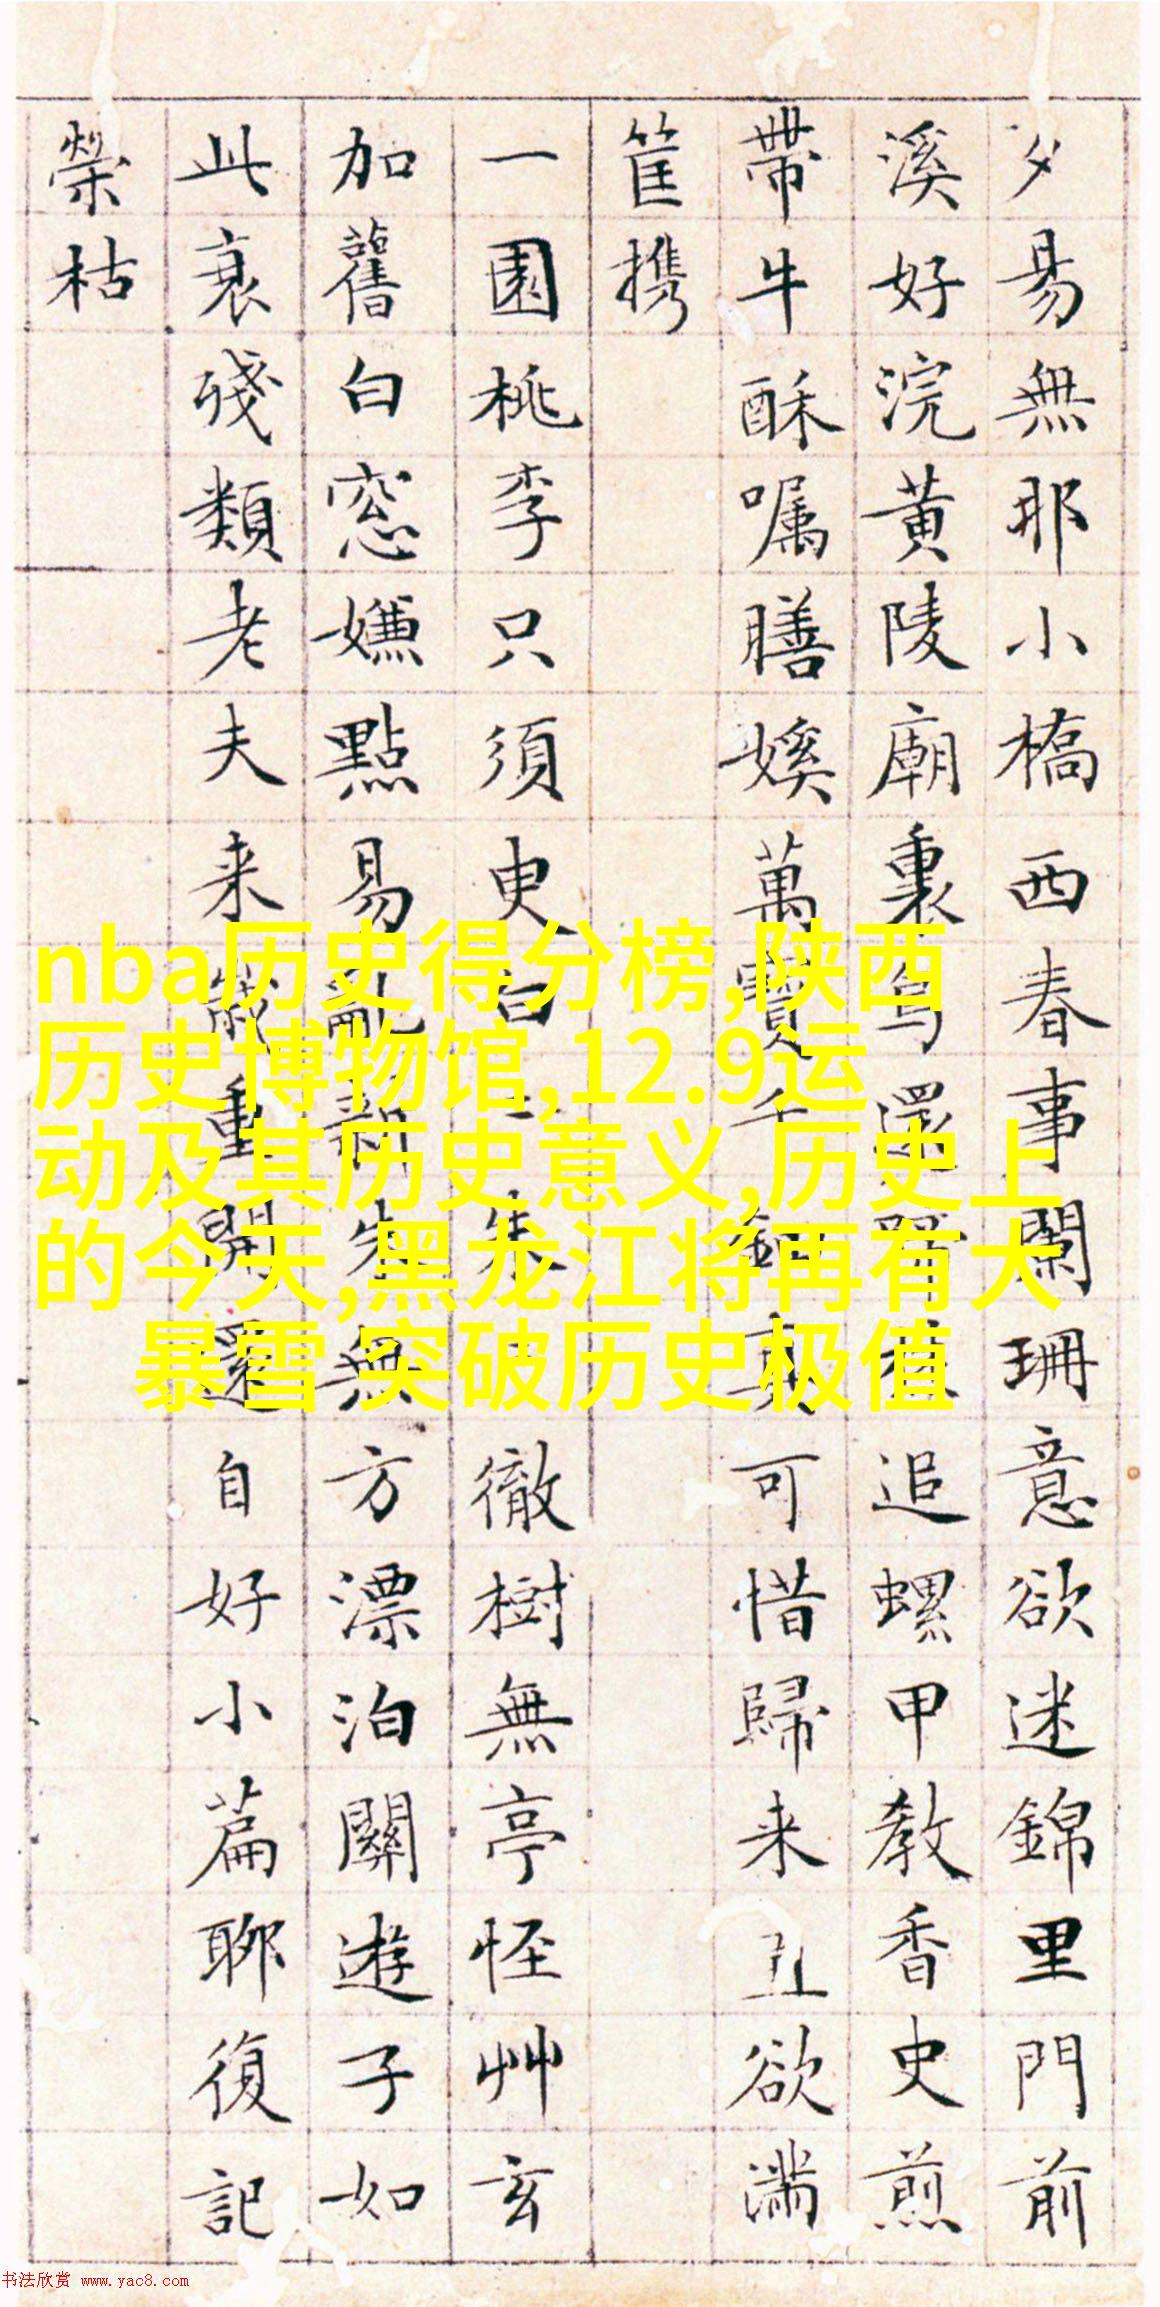 夕易無耶小橋西春事闌珊意欲迷錦里門前
溪好浣黃陵廟裏鳥還啼追螺甲教香史煎
帶牛酥嘱膳萬寶千真可惜歸来欲滿
筐携
一園桃李只須臾白朱徹樹無亭怪艸玄
加舊白窓嫌點易亂新朱無方漂泊關遊子如
此衰殘類老夫来歲重開還自好小篇聊復記
榮枯
nba历史得分榜,陕西
历史博物馆,12.9运
动及其历史意义,历史上
的今天,黑龙江将再有大
暴雪 突破历史极值
书法欣赏 www.yac8.com